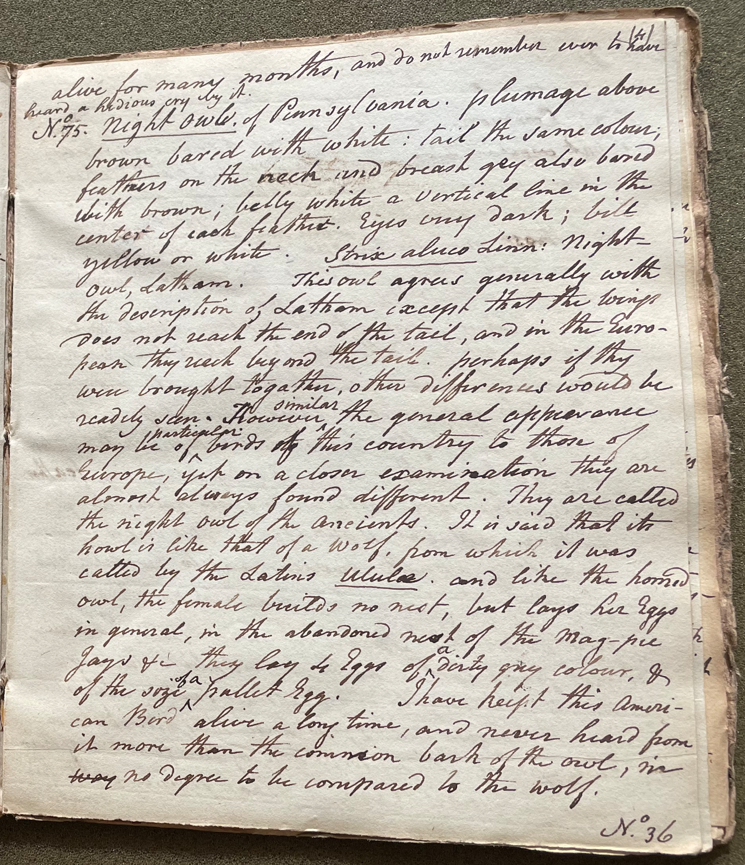 alive for many months, and do not remember ever to have
heard a hedious cry by it.
No. 75. Night Owls. of Pennsylvania. plumage above
brown bared with white: tail the same colour;
feathers on the neck and breast grey also bared
with brown; belly white a vertical line in the
center of each feather. Eyes very dark; bill
yellow or white. Strix aluco Linn: Night-
Owl, Latham. This owl agrees generally with
the description of Latham except that the wings
does not reach the end of the tail, and in the Euro-
pean they reach beyond the tail perhaps if they
were brought together, other differences would be
readily seen. However similar the general appearance
may be of particular birds of this country to those of
Europe, yet on a closer examination they are
almost always found different. They are called
the night owl of the ancients. It is said that its
howl is like that of a Wolf, from which it was
called by the Latins Ululæ. and like the horned
owl, the female builds no nest, but lays her Eggs
in general, in the abandoned nest of the mag-pie
Jays &c they lay 4 Eggs of a dirty grey colour, &
of the size of a pullet Egg. I have keept this Ameri-
can Bird alive a long time, and never heard from
it more than the common bark of the owl, in
way no degree to be compared to the wolf.
No. 36